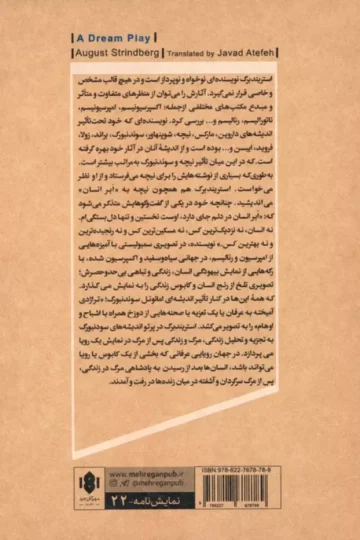 A Dream Play
August Strindberg | Translated by Javad Atefeh
استریندبرگ نویسنده‌ای نوخواه و نوپرداز است و در هیچ قالب مشخص
و خاصی قرار نمی‌گیرد. آثارش را می‌توان از منظرهای متفاوت و متأثر
و مبدع مکتب‌های مختلفی ازجمله؛ اکسپرسیونیسم، امپرسیونیسم،
ناتورالیسم، رئالیسم و... بررسی کرد. نویسنده‌ای که خود تحت‌تأثیر
اندیشه‌های داروین، مارکس، نیچه، شوپنهاور، سوئدنبورگ، براند، زولا،
فروید، ایبسن و... بوده است و از اندیشهٔ آنان در آثار خود بهره گرفته
است. که در این میان تأثیر نیچه و سوئدنبورگ به‌مراتب بیشتر است.
به‌طوری‌که بسیاری از نوشته‌هایش را برای نیچه می‌فرستاد و از او نظر
می‌خواست. استریندبرگ هم همچون نیچه به «ابر انسان»
می‌اندیشید. چنانچه خود در یکی از گفت‌وگوهایش متذکر می‌شود
که: «ابر انسان در دلم جای دارد، اوست نخستین و تنها دل‌بستگی‌ام.
نه انسان، نه نزدیک‌ترین کس، نه مسکین‌ترین کس و نه رنجیده‌ترین
و نه بهترین کس.» نویسنده، در تصویری سمبولیستی با آمیزه‌هایی
از امپرسیون و رئالیسم، در جهانی سیاه‌وسفید و اکسپرسیون شده، با
رگه‌هایی از نمایش بیهودگی انسان، زندگی و تباهی بی‌حدوحصرش؛
تصویری تلخ از رنج انسان و کابوس زندگی را به نمایش می گذارد.
که همهٔ این‌ها در کنار تأثیر اندیشه‌ای امانوئل سوئدنبورگ؛ «تراژدی
آمیخته به عرفان یا یک تعزیه یا صحنه‌هایی از دوزخ همراه با اشباح و
اوهام» را به تصویر می‌کشد. استریندبرگ در پرتو اندیشه‌های سودنبورگ
به تجزیه و تحلیل زندگی، مرگ و زندگی پس از مرگ در نمایش یک رویا
می پردازد. در جهان رویایی عرفانی که بخشی از یک کابوس یا رویا
می‌تواند باشد، انسان‌ها بعد از رسیدن به پادشاهی مرگ در زندگی،
پس از مرگ سرگردان و آشفته در میان زنده‌ها در رفت و آمدند.
www.mehreganpub.ir
@mehreganpub
نمایش‌نامه-۲۲
ISBN: 978-622-7678-78-9